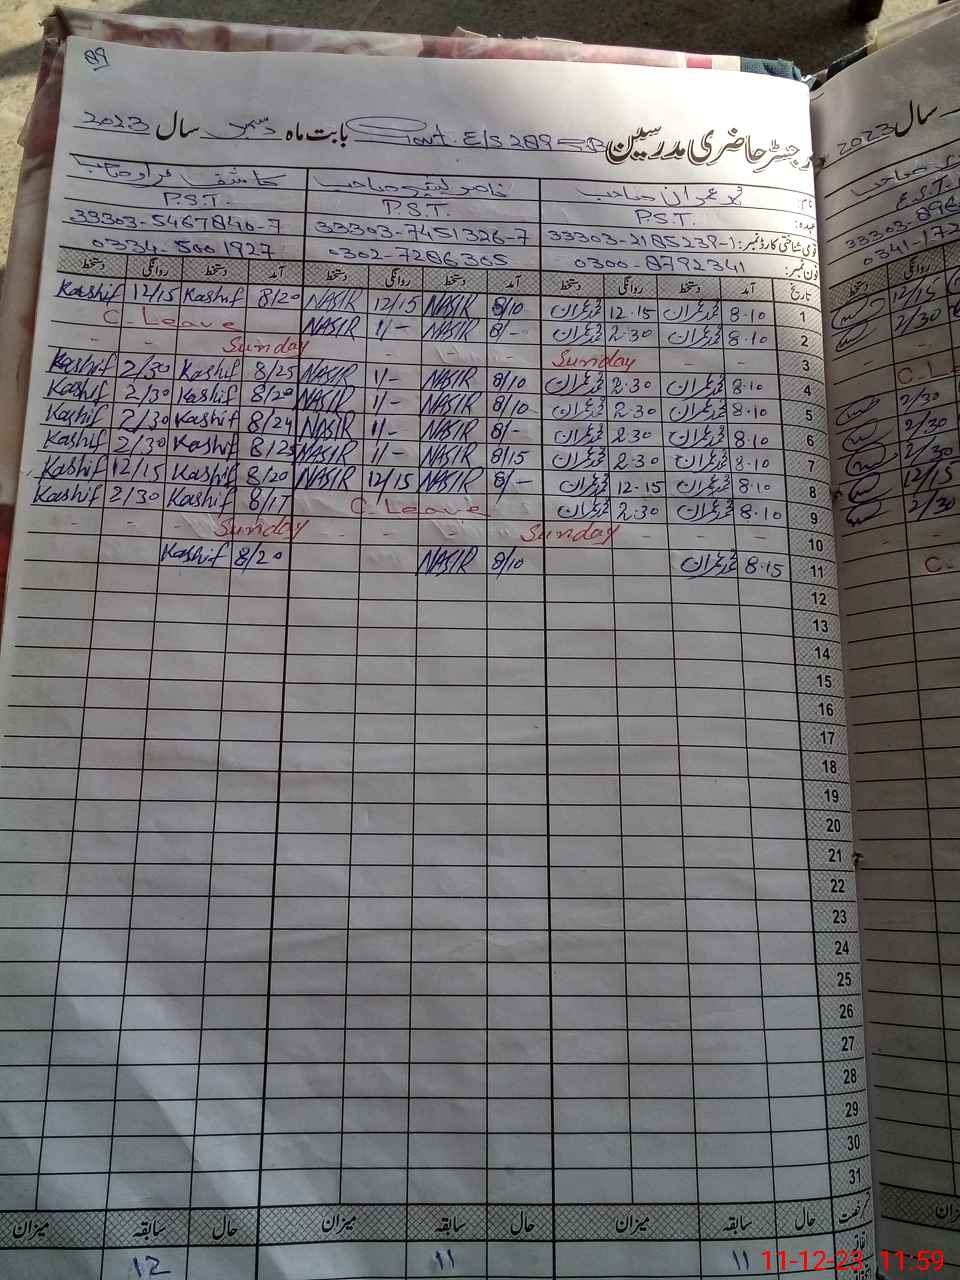 89
رجسٹر حاضری مدرسین Govt. E/S 289 بابت ماہ دسمبر سال 2023
نام: محمد عمران صاحب ناصر صاحب کاشف صاحب
عہدہ: P.S.T. P.S.T. P.S.T.
قومی شناختی کارڈ نمبر: 33303-2185239-1 33303-7451326-7 33303-5467840-7
فون نمبر: 0300-8792341 0302-7286305 0334-5001927
تاریخ آمد دستخط روانگی دستخط آمد دستخط روانگی دستخط آمد دستخط روانگی دستخط
1 8.10 محمد عمران 12.15 محمد عمران 8/10 NASIR 12/15 NASIR 8/20 Kashif 12/15 Kashif
2 8.10 محمد عمران 2.30 محمد عمران 8/- NASIR 1/- NASIR C. Leave
3 - - Sunday - - - - Sunday - -
4 8.10 محمد عمران 2.30 محمد عمران 8/10 NASIR 1/- NASIR 8/25 Kashif 2/30 Kashif
5 8.10 محمد عمران 2.30 محمد عمران 8/10 NASIR 1/- NASIR 8/20 Kashif 2/30 Kashif
6 8.10 محمد عمران 2.30 محمد عمران 8/- NASIR 1/- NASIR 8/24 Kashif 2/30 Kashif
7 8.10 محمد عمران 2.30 محمد عمران 8/15 NASIR 1/- NASIR 8/25 Kashif 2/30 Kashif
8 8.10 محمد عمران 12.15 محمد عمران 8/- NASIR 12/15 NASIR 8/20 Kashif 12/15 Kashif
9 8.10 محمد عمران 2.30 محمد عمران C. Leave 8/17 Kashif 2/30 Kashif
10 - - - Sunday - - - Sunday - - -
11 8.15 محمد عمران 8/10 NASIR 8/20 Kashif
12
13
14
15
16
17
18
19
20
21
22
23
24
25
26
27
28
29
30
31
رخصت حال سابقہ میزان حال سابقہ میزان حال سابقہ میزان
اتفاقیہ 11 11 12
سال 2023
P.S.T.
0341-172
روانگی دستخط
12/15
2/30
-
C. Le
2/30
2/30
2/30
12/15
2/30
-
C.
میزان
11-12-23 11:59